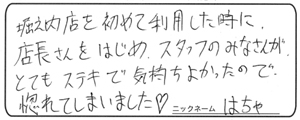 堀之内店を初めて利用した時に、
店長さんをはじめ、スタッフのみなさんが、
とてもステキで気持ちよかったので、
惚れてしまいました♡
ニックネーム はちゃ